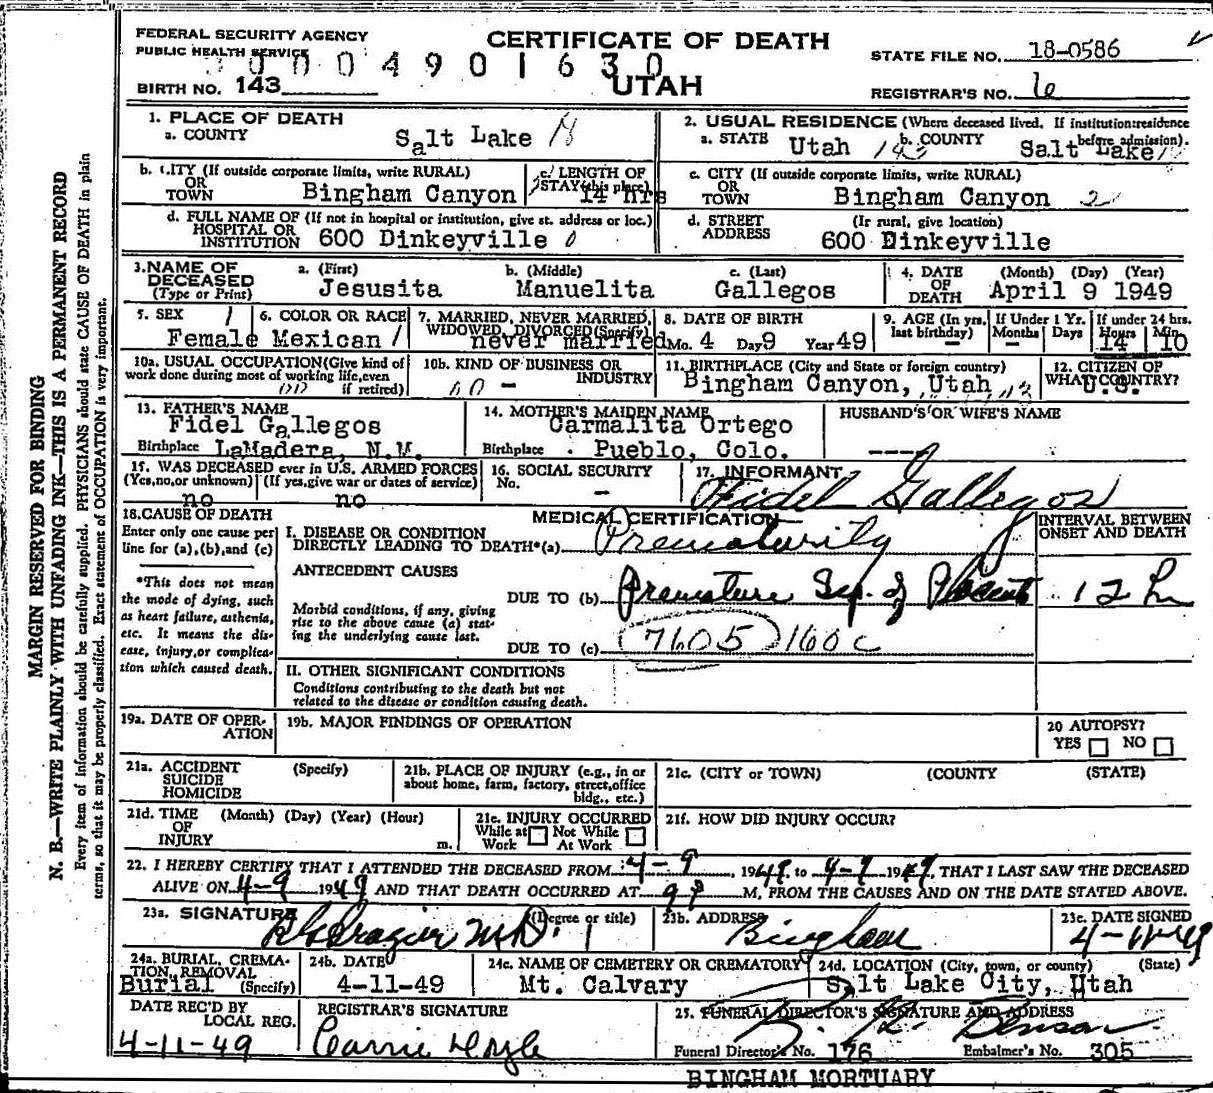 FEDERAL SECURITY AGENCY
PUBLIC HEALTH SERVICE
CERTIFICATE OF DEATH
STATE FILE NO. 18-0586
0004901630
BIRTH NO. 143
UTAH
REGISTRAR'S NO. 6
1. PLACE OF DEATH
a. COUNTY Salt Lake
2. USUAL RESIDENCE (Where deceased lived. If institution:residence before admission).
a. STATE Utah b. COUNTY Salt Lake
b. CITY (If outside corporate limits, write RURAL) OR TOWN Bingham Canyon
c. LENGTH OF STAY (this place) 14 hrs
c. CITY (If outside corporate limits, write RURAL) OR TOWN Bingham Canyon 2
d. FULL NAME OF (If not in hospital or institution, give st. address or loc.) HOSPITAL OR INSTITUTION 600 Dinkeyville 0
d. STREET ADDRESS (If rural, give location) 600 Dinkeyville
3. NAME OF DECEASED (Type or Print)
a. (First) Jesusita
b. (Middle) Manuelita
c. (Last) Gallegos
4. DATE OF DEATH (Month) (Day) (Year) April 9 1949
5. SEX Female
6. COLOR OR RACE Mexican
7. MARRIED, NEVER MARRIED, WIDOWED, DIVORCED (Specify) never married
8. DATE OF BIRTH Mo. 4 Day 9 Year 49
9. AGE (In yrs. last birthday) —
If Under 1 Yr. Months — Days
If under 24 hrs. Hours 14 Min 10
10a. USUAL OCCUPATION (Give kind of work done during most of working life, even if retired)
10b. KIND OF BUSINESS OR INDUSTRY —
11. BIRTHPLACE (City and State or foreign country) Bingham Canyon, Utah
12. CITIZEN OF WHAT COUNTRY? U.S.
13. FATHER'S NAME Fidel Gallegos
Birthplace LaMadera, N.M.
14. MOTHER'S MAIDEN NAME Carmalita Ortego
Birthplace Pueblo, Colo.
HUSBAND'S OR WIFE'S NAME
----
15. WAS DECEASED ever in U.S. ARMED FORCES
(Yes,no,or unknown) no
(If yes,give war or dates of service) no
16. SOCIAL SECURITY No. —
17. INFORMANT Fidel Gallegos
18. CAUSE OF DEATH
Enter only one cause per line for (a),(b),and (c)
*This does not mean the mode of dying, such as heart failure, asthenia, etc. It means the disease, injury,or complication which caused death.
MEDICAL CERTIFICATION
INTERVAL BETWEEN ONSET AND DEATH
I. DISEASE OR CONDITION DIRECTLY LEADING TO DEATH*(a) Prematurity
ANTECEDENT CAUSES
Morbid conditions, if any, giving rise to the above cause (a) stating the underlying cause last.
DUE TO (b) Premature Sep. of Placenta 12 h
DUE TO (c) 7605 160c
II. OTHER SIGNIFICANT CONDITIONS
Conditions contributing to the death but not related to the disease or condition causing death.
19a. DATE OF OPERATION
19b. MAJOR FINDINGS OF OPERATION
20 AUTOPSY?
YES NO
21a. ACCIDENT SUICIDE HOMICIDE (Specify)
21b. PLACE OF INJURY (e.g., in or about home, farm, factory, street,office bldg., etc.)
21c. (CITY or TOWN) (COUNTY) (STATE)
21d. TIME OF INJURY (Month) (Day) (Year) (Hour) m.
21e. INJURY OCCURRED While at Work Not While At Work
21f. HOW DID INJURY OCCUR?
22. I HEREBY CERTIFY THAT I ATTENDED THE DECEASED FROM 4-9, 1949, to 4-9 1949, THAT I LAST SAW THE DECEASED
ALIVE ON 4-9 1949 AND THAT DEATH OCCURRED AT 9 P M, FROM THE CAUSES AND ON THE DATE STATED ABOVE.
23a. SIGNATURE (Degree or title) Frazier M.D.
23b. ADDRESS Bingham
23c. DATE SIGNED 4-11-49
24a. BURIAL, CREMATION, REMOVAL (Specify) Burial
24b. DATE 4-11-49
24c. NAME OF CEMETERY OR CREMATORY Mt. Calvary
24d. LOCATION (City, town, or county) (State) Salt Lake City, Utah
DATE REC'D BY LOCAL REG. 4-11-49
REGISTRAR'S SIGNATURE Carrie Doyle
25. FUNERAL DIRECTOR'S SIGNATURE AND ADDRESS
Funeral Director's No. 176 Embalmer's No. 305
BINGHAM MORTUARY
MARGIN RESERVED FOR BINDING
N. B.—WRITE PLAINLY WITH UNFADING INK—THIS IS A PERMANENT RECORD
Every item of information should be carefully supplied. PHYSICIANS should state CAUSE OF DEATH in plain
terms, so that it may be properly classified. Exact statement of OCCUPATION is very important.